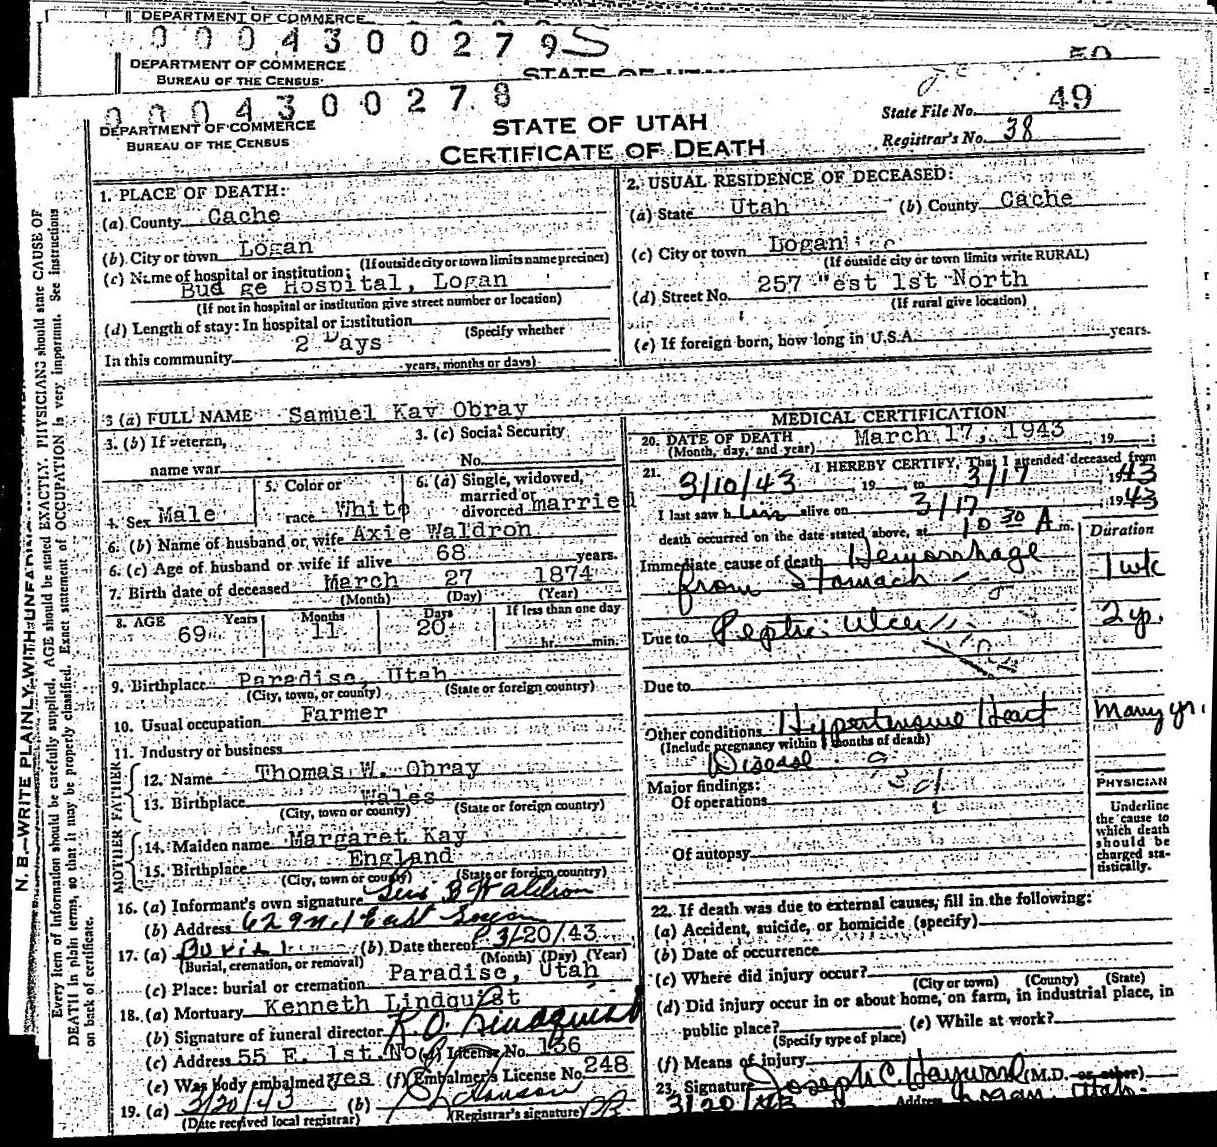 DEPARTMENT OF COMMERCE
0 0 0 4 3 0 0 2 7 9 S
DEPARTMENT OF COMMERCE
BUREAU OF THE CENSUS
STATE OF UTAH
50
0 0 0 4 3 0 0 2 7 8
DEPARTMENT OF COMMERCE
BUREAU OF THE CENSUS
STATE OF UTAH
CERTIFICATE OF DEATH
State File No. 49
Registrar's No. 38
N. B.—WRITE PLAINLY WITH UNFADING
Every item of information should be carefully supplied. AGE should be stated EXACTLY. PHYSICIANS should state CAUSE OF
DEATH in plain terms, so that it may be properly classified. Exact statement of OCCUPATION is very important. See instructions
on back of certificate.
1. PLACE OF DEATH:
(a) County Cache
(b) City or town Logan
(If outside city or town limits name precinct)
(c) Name of hospital or institution:
Bud ge Hospital, Logan
(If not in hospital or institution give street number or location)
(d) Length of stay: In hospital or institution
(Specify whether
2 Days
In this community
years, months or days)
2. USUAL RESIDENCE OF DECEASED:
(a) State Utah (b) County Cache
(c) City or town Logan
(If outside city or town limits write RURAL)
(d) Street No. 257 West 1st North
(If rural give location)
(e) If foreign born, how long in U.S.A. years.
3 (a) FULL NAME Samuel Kay Obray
3. (b) If veteran, 3. (c) Social Security
name war No.
4. Sex Male
5. Color or
race White
6. (a) Single, widowed,
married or
divorced married
6. (b) Name of husband or wife Axie Waldron
6. (c) Age of husband or wife if alive 68 years.
7. Birth date of deceased March 27 1874
(Month) (Day) (Year)
8. AGE Years Months Days If less than one day
69 11 20 hr. min.
9. Birthplace Paradise, Utah
(City, town, or county) (State or foreign country)
10. Usual occupation Farmer
11. Industry or business
FATHER
12. Name Thomas W. Obray
13. Birthplace Wales
(City, town or county) (State or foreign country)
MOTHER
14. Maiden name Margaret Kay
15. Birthplace England
(City, town or county) (State or foreign country)
16. (a) Informant's own signature B Waldron
(b) Address 629 N. 1 East Logan
17. (a) Burial (b) Date thereof 3/20/43
(Burial, cremation, or removal) (Month) (Day) (Year)
(c) Place: burial or cremation Paradise, Utah
18. (a) Mortuary Kenneth Lindquist
(b) Signature of funeral director K. O. Lindquist
(c) Address 55 E. 1st. No (d) License No. 136
(e) Was body embalmed yes (f) Embalmer's License No. 248
19. (a) 3/20/43 (b)
(Date received local registrar) (Registrar's signature)
MEDICAL CERTIFICATION
20. DATE OF DEATH
(Month, day, and year) March 17, 1943 19 ;
21. I HEREBY CERTIFY, That I attended deceased from
3/10/43 19 to 3/17 1943
I last saw him alive on 3/17 1943
death occurred on the date stated above, at 10 30 A m.
Duration
Immediate cause of death Hemorrhage
from Stomach
1 wk
Due to Peptic ulcer
2 yr.
Due to
Other conditions Hypertensive Heart
(Include pregnancy within 3 months of death)
Disease
Many yr.
Major findings:
Of operations
Of autopsy
PHYSICIAN
Underline
the cause to
which death
should be
charged sta-
tistically.
22. If death was due to external causes, fill in the following:
(a) Accident, suicide, or homicide (specify)
(b) Date of occurrence
(c) Where did injury occur?
(City or town) (County) (State)
(d) Did injury occur in or about home, on farm, in industrial place, in
public place? (e) While at work?
(Specify type of place)
(f) Means of injury
23. Signature Joseph C. Hayward (M.D. or other)
3/20/43 Address Logan, Utah.